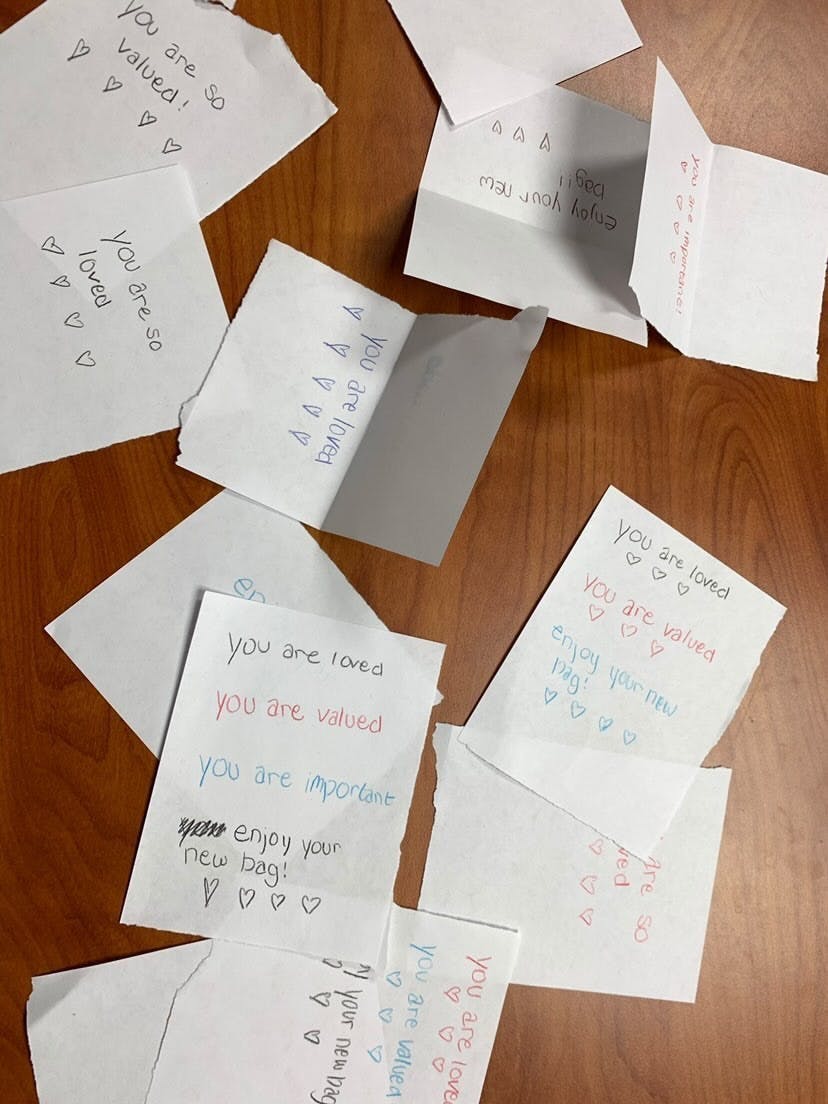 You are so
valued!
You are so
loved
enjoy your new
bag!!
you are important!
you are loved
you are loved
you are valued
enjoy your new
bag!
you are loved
you are valued
you are important
enjoy your
new bag!
are so
your new bag
you are valued
you are loved